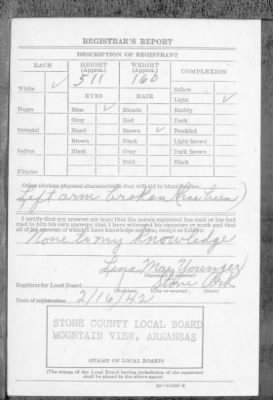 REGISTRAR'S REPORT
DESCRIPTION OF REGISTRANT
RACE HEIGHT (Approx.) WEIGHT (Approx.) COMPLEXION
5 11 160
White ✓ Sallow
EYES HAIR Light ✓
Negro Blue ✓ Blonde Ruddy
Gray Red Dark
Oriental Hazel Brown ✓ Freckled
Brown Black Light brown
Indian Black Gray Dark brown
Bald Black
Filipino
Other obvious physical characteristics that will aid in identification
Left arm broken (has been)
I certify that my answers are true; that the person registered has read or has had
read to him his own answers; that I have witnessed his signature or mark and that
all of his answers of which I have knowledge are true, except as follows:
None to my knowledge
Lena Mae Younger
Registrar for Local Board Stone Ark
(Number) (City or county) (State)
Date of registration 2/16/42
STONE COUNTY LOCAL BOARD
MOUNTAIN VIEW, ARKANSAS
STAMP OF LOCAL BOARD
(The stamp of the Local Board having jurisdiction of the registrant
shall be placed in the above space)